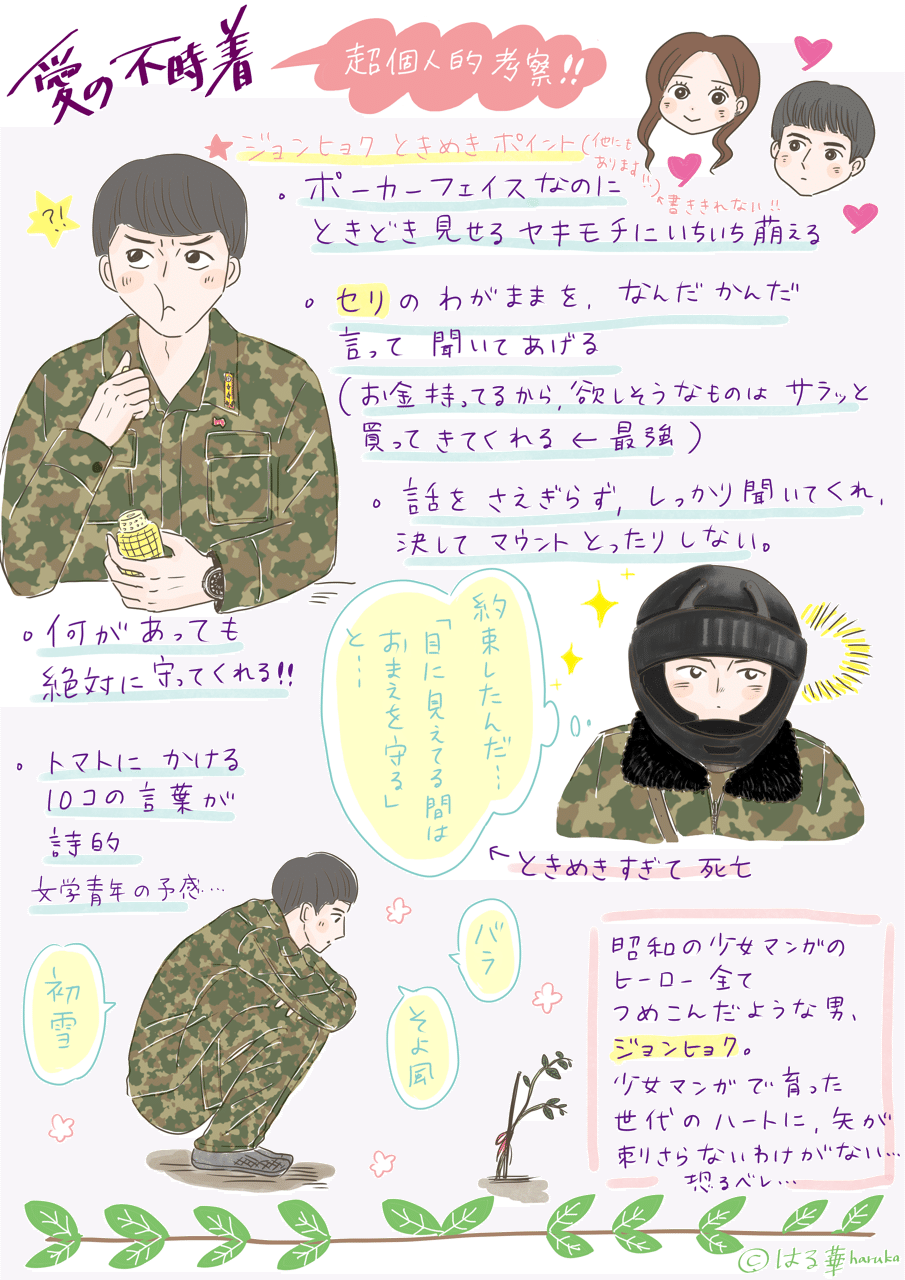 愛の不時着
超個人的考察!!
★ジョンヒョク ときめき ポイント(他にも
あります!!)
↖書ききれない!!
。ポーカーフェイスなのに
ときどき見せるヤキモチにいちいち萌える
?!
。セリのわがままを、なんだかんだ
言って聞いてあげる
(お金持ってるから、欲しそうなものはサラッと
買ってきてくれる←最強)
。話をさえぎらず、しっかり聞いてくれ、
決してマウントとったりしない。
。何があっても
絶対に守ってくれる!!
約束したんだ…
「目に見えてる間は
おまえを守る」
と…
↖ときめきすぎて死亡
。トマトにかける
10コの言葉が
詩的
文学青年の予感…
初雪
バラ
そよ風
昭和の少女マンガの
ヒーロー全て
つめこんだような男、
ジョンヒョク。
少女マンガで育った
世代のハートに、矢が
刺さらないわけがない…
恐るべし…
©はる華haruka